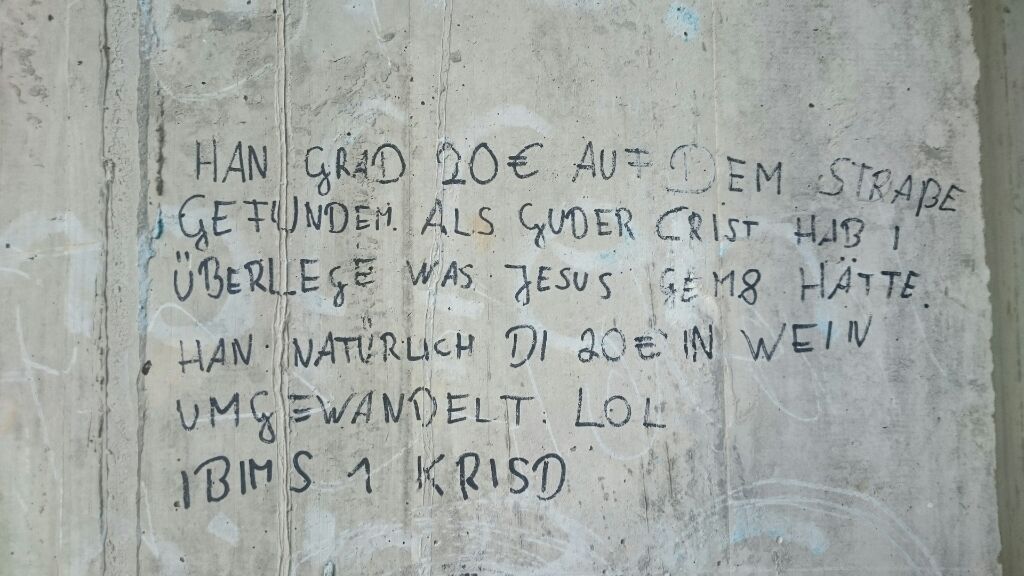 HAN GRAD 20€ AUF DEM STRAßE
GEFUNDEM. ALS GUDER CRIST HAB I
ÜBERLEGE WAS JESUS GEM8 HÄTTE.
HAN NATÜRLICH DI 20€ IN WEIN
UMGEWANDELT. LOL
IBIMS 1 KRISD